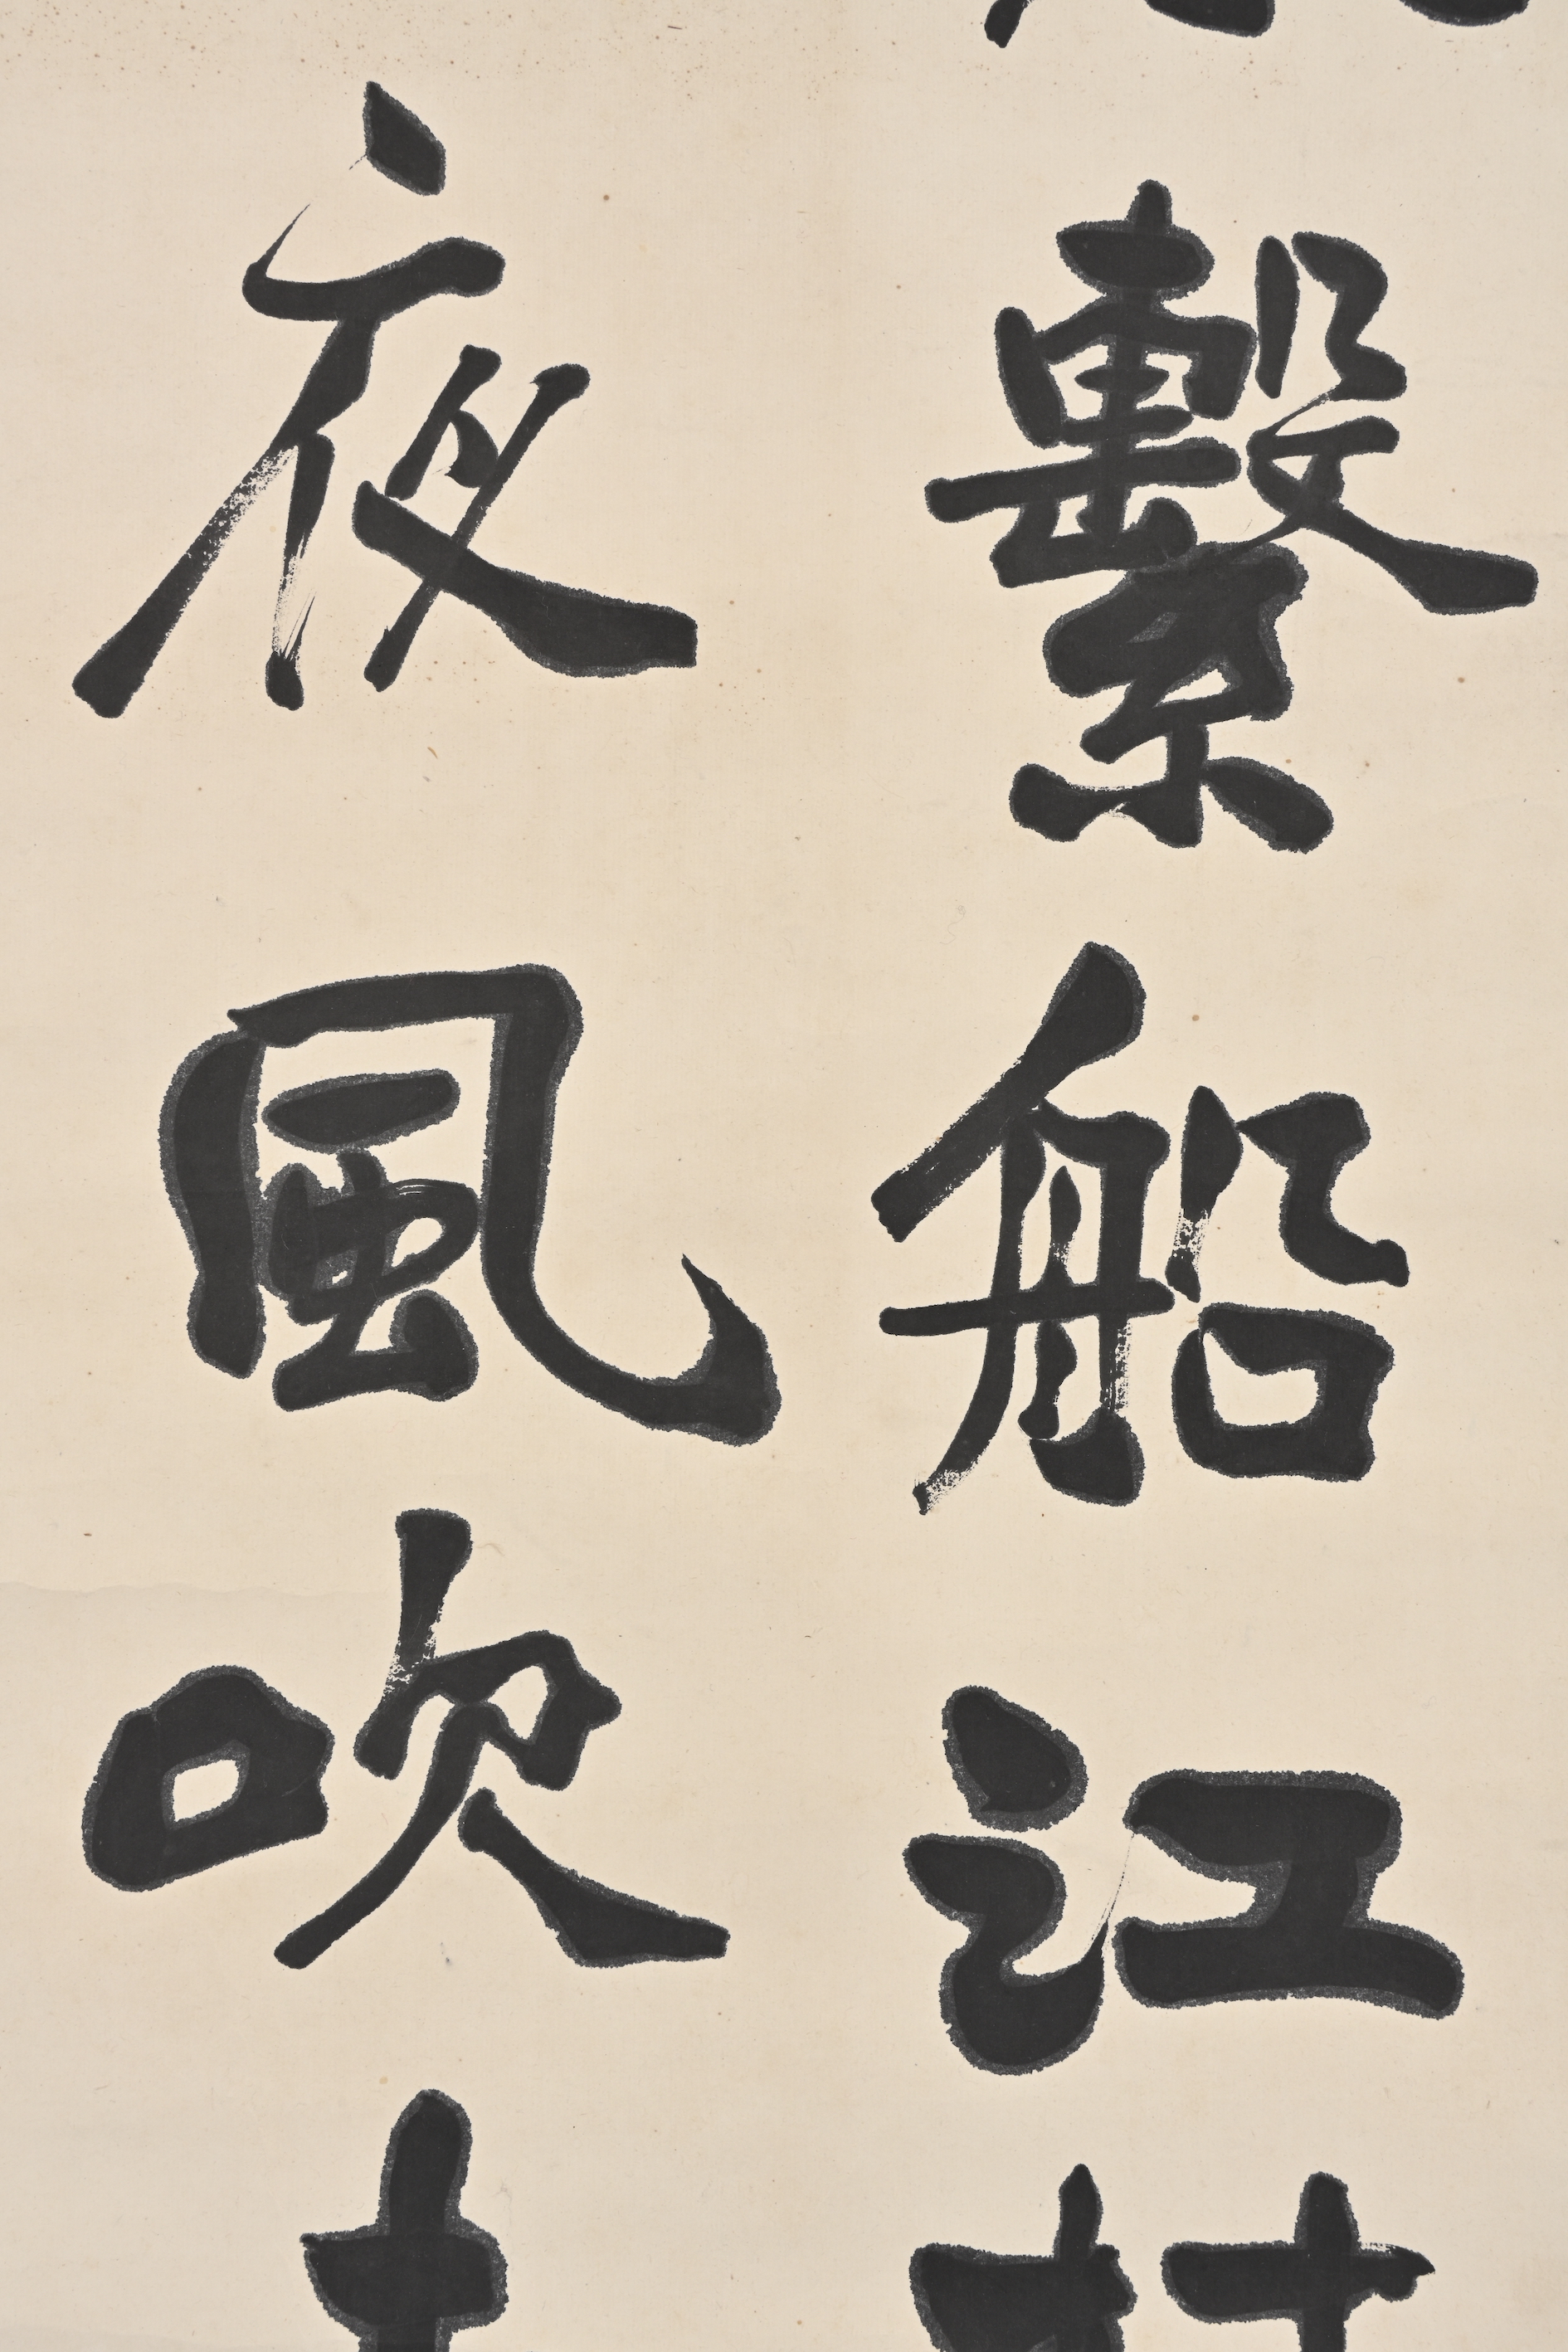 繫船江村
夜風吹